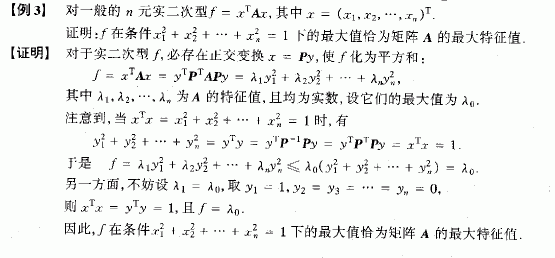 【例3】 对一般的 n 元实二次型 f = xᵀAx, 其中 x = (x₁, x₂, ⋯, xₙ)ᵀ.
证明: f 在条件 x₁² + x₂² + ⋯ + xₙ² = 1 下的最大值恰为矩阵 A 的最大特征值.
【证明】 对于实二次型 f, 必存在正交变换 x = Py, 使 f 化为平方和:
f = xᵀAx = yᵀPᵀAPy = λ₁y₁² + λ₂y₂² + ⋯ + λₙyₙ²,
其中 λ₁, λ₂, ⋯, λₙ 为 A 的特征值, 且均为实数, 设它们的最大值为 λ₀.
注意到, 当 xᵀx = x₁² + x₂² + ⋯ + xₙ² = 1 时, 有
y₁² + y₂² + ⋯ + yₙ² = yᵀy = yᵀP⁻¹Py = yᵀPᵀPy = xᵀx = 1.
于是 f = λ₁y₁² + λ₂y₂² + ⋯ + λₙyₙ² ≤ λ₀(y₁² + y₂² + ⋯ + yₙ²) = λ₀.
另一方面, 不妨设 λ₁ = λ₀, 取 y₁ = 1, y₂ = y₃ = ⋯ = yₙ = 0,
则 xᵀx = yᵀy = 1, 且 f = λ₀.
因此, f 在条件 x₁² + x₂² + ⋯ + xₙ² = 1 下的最大值恰为矩阵 A 的最大特征值.